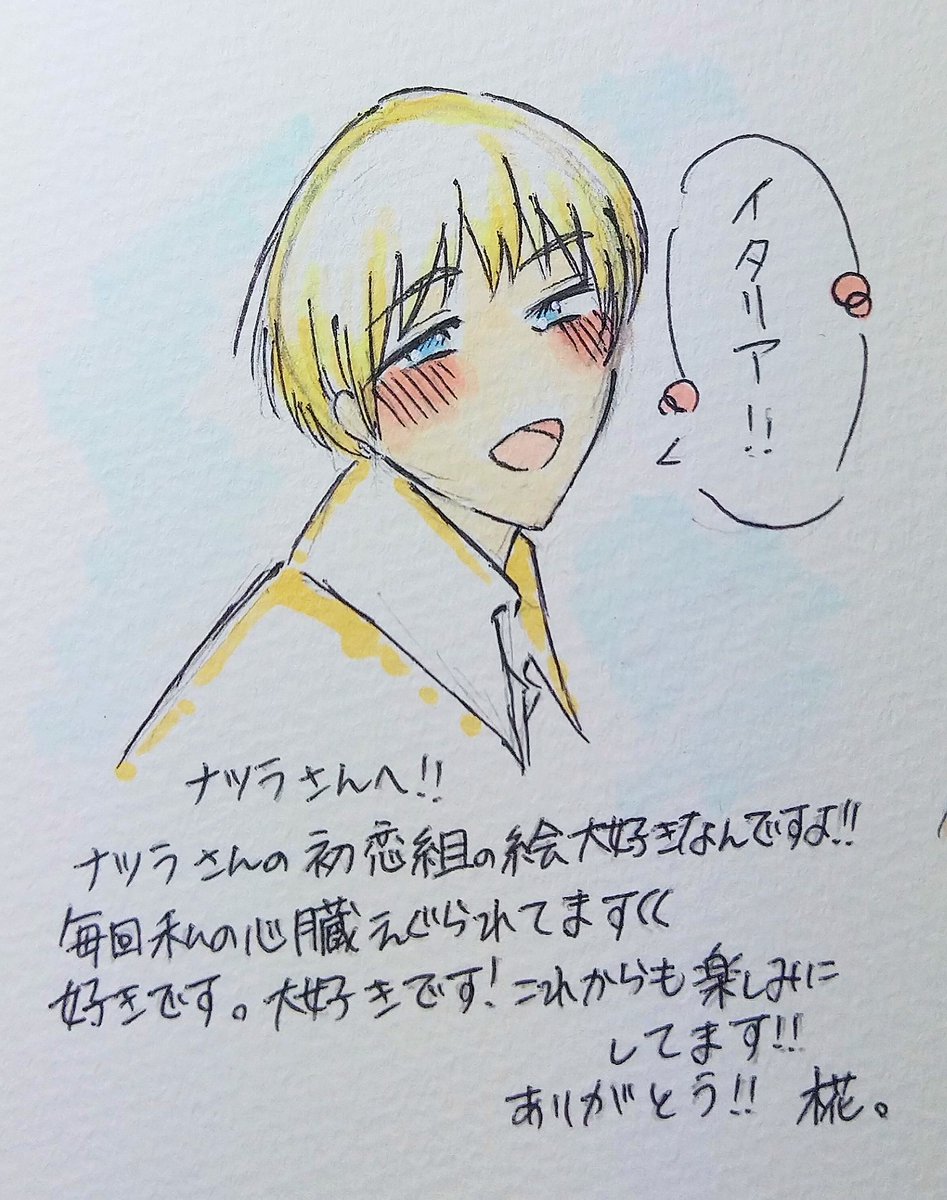 イタリア!!
ナツラさんへ!!
ナツラさんの初恋組の絵大好きなんですよ!!
毎回私の心臓えぐられてます<<
好きです。大好きです!これからも楽しみに
してます!!
ありがとう!! 椛。